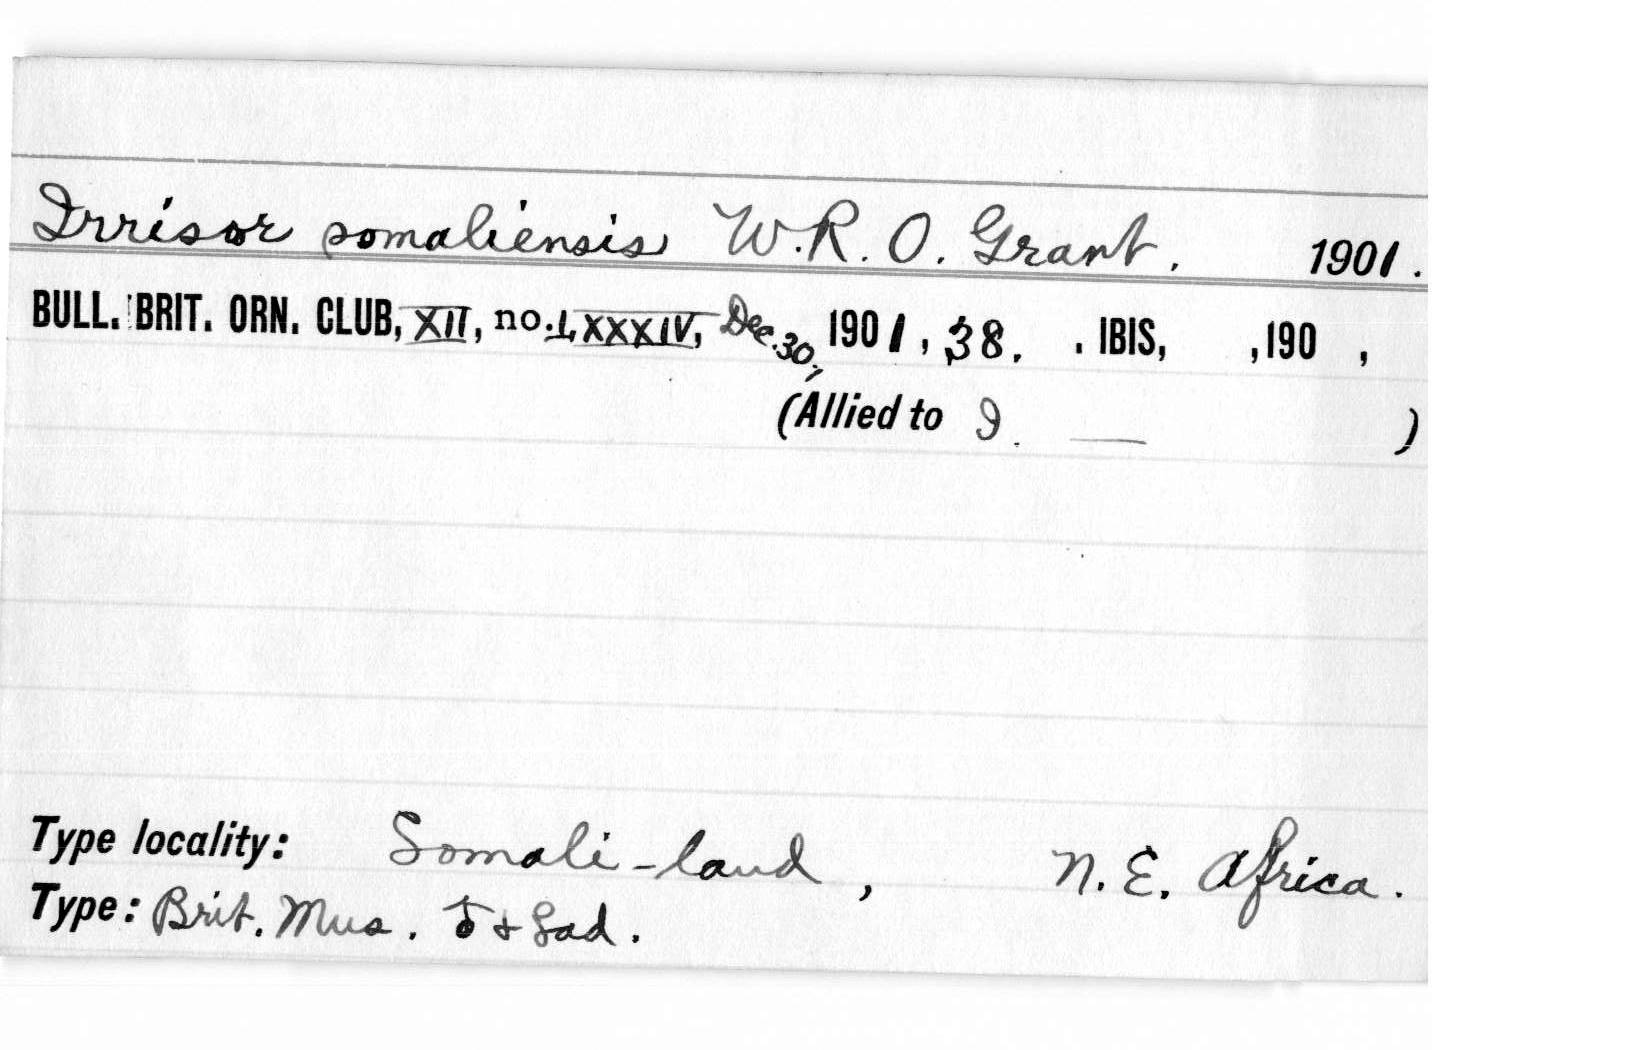 Irrisor somaliensis W.R.O. Grant. 1901.
BULL. BRIT. ORN. CLUB, XII, no. LXXXIV, Dec. 30, 1901, 38. . IBIS, ,190 ,
(Allied to I. — )
Type locality: Somali-land, N.E. Africa.
Type: Brit. Mus. ♂ + ad.